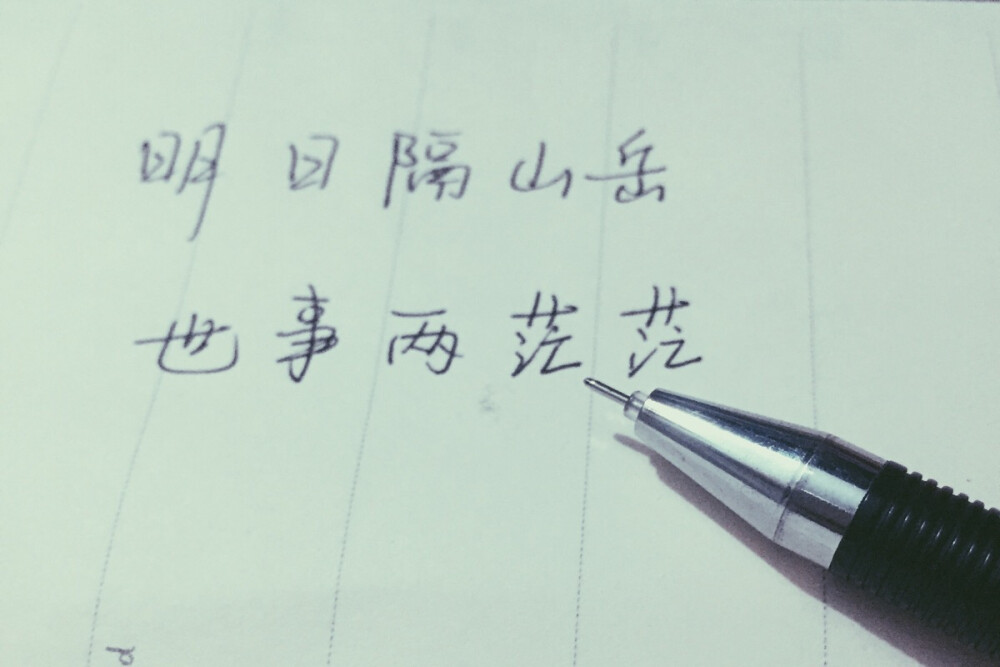 明日隔山岳
世事两茫茫
d